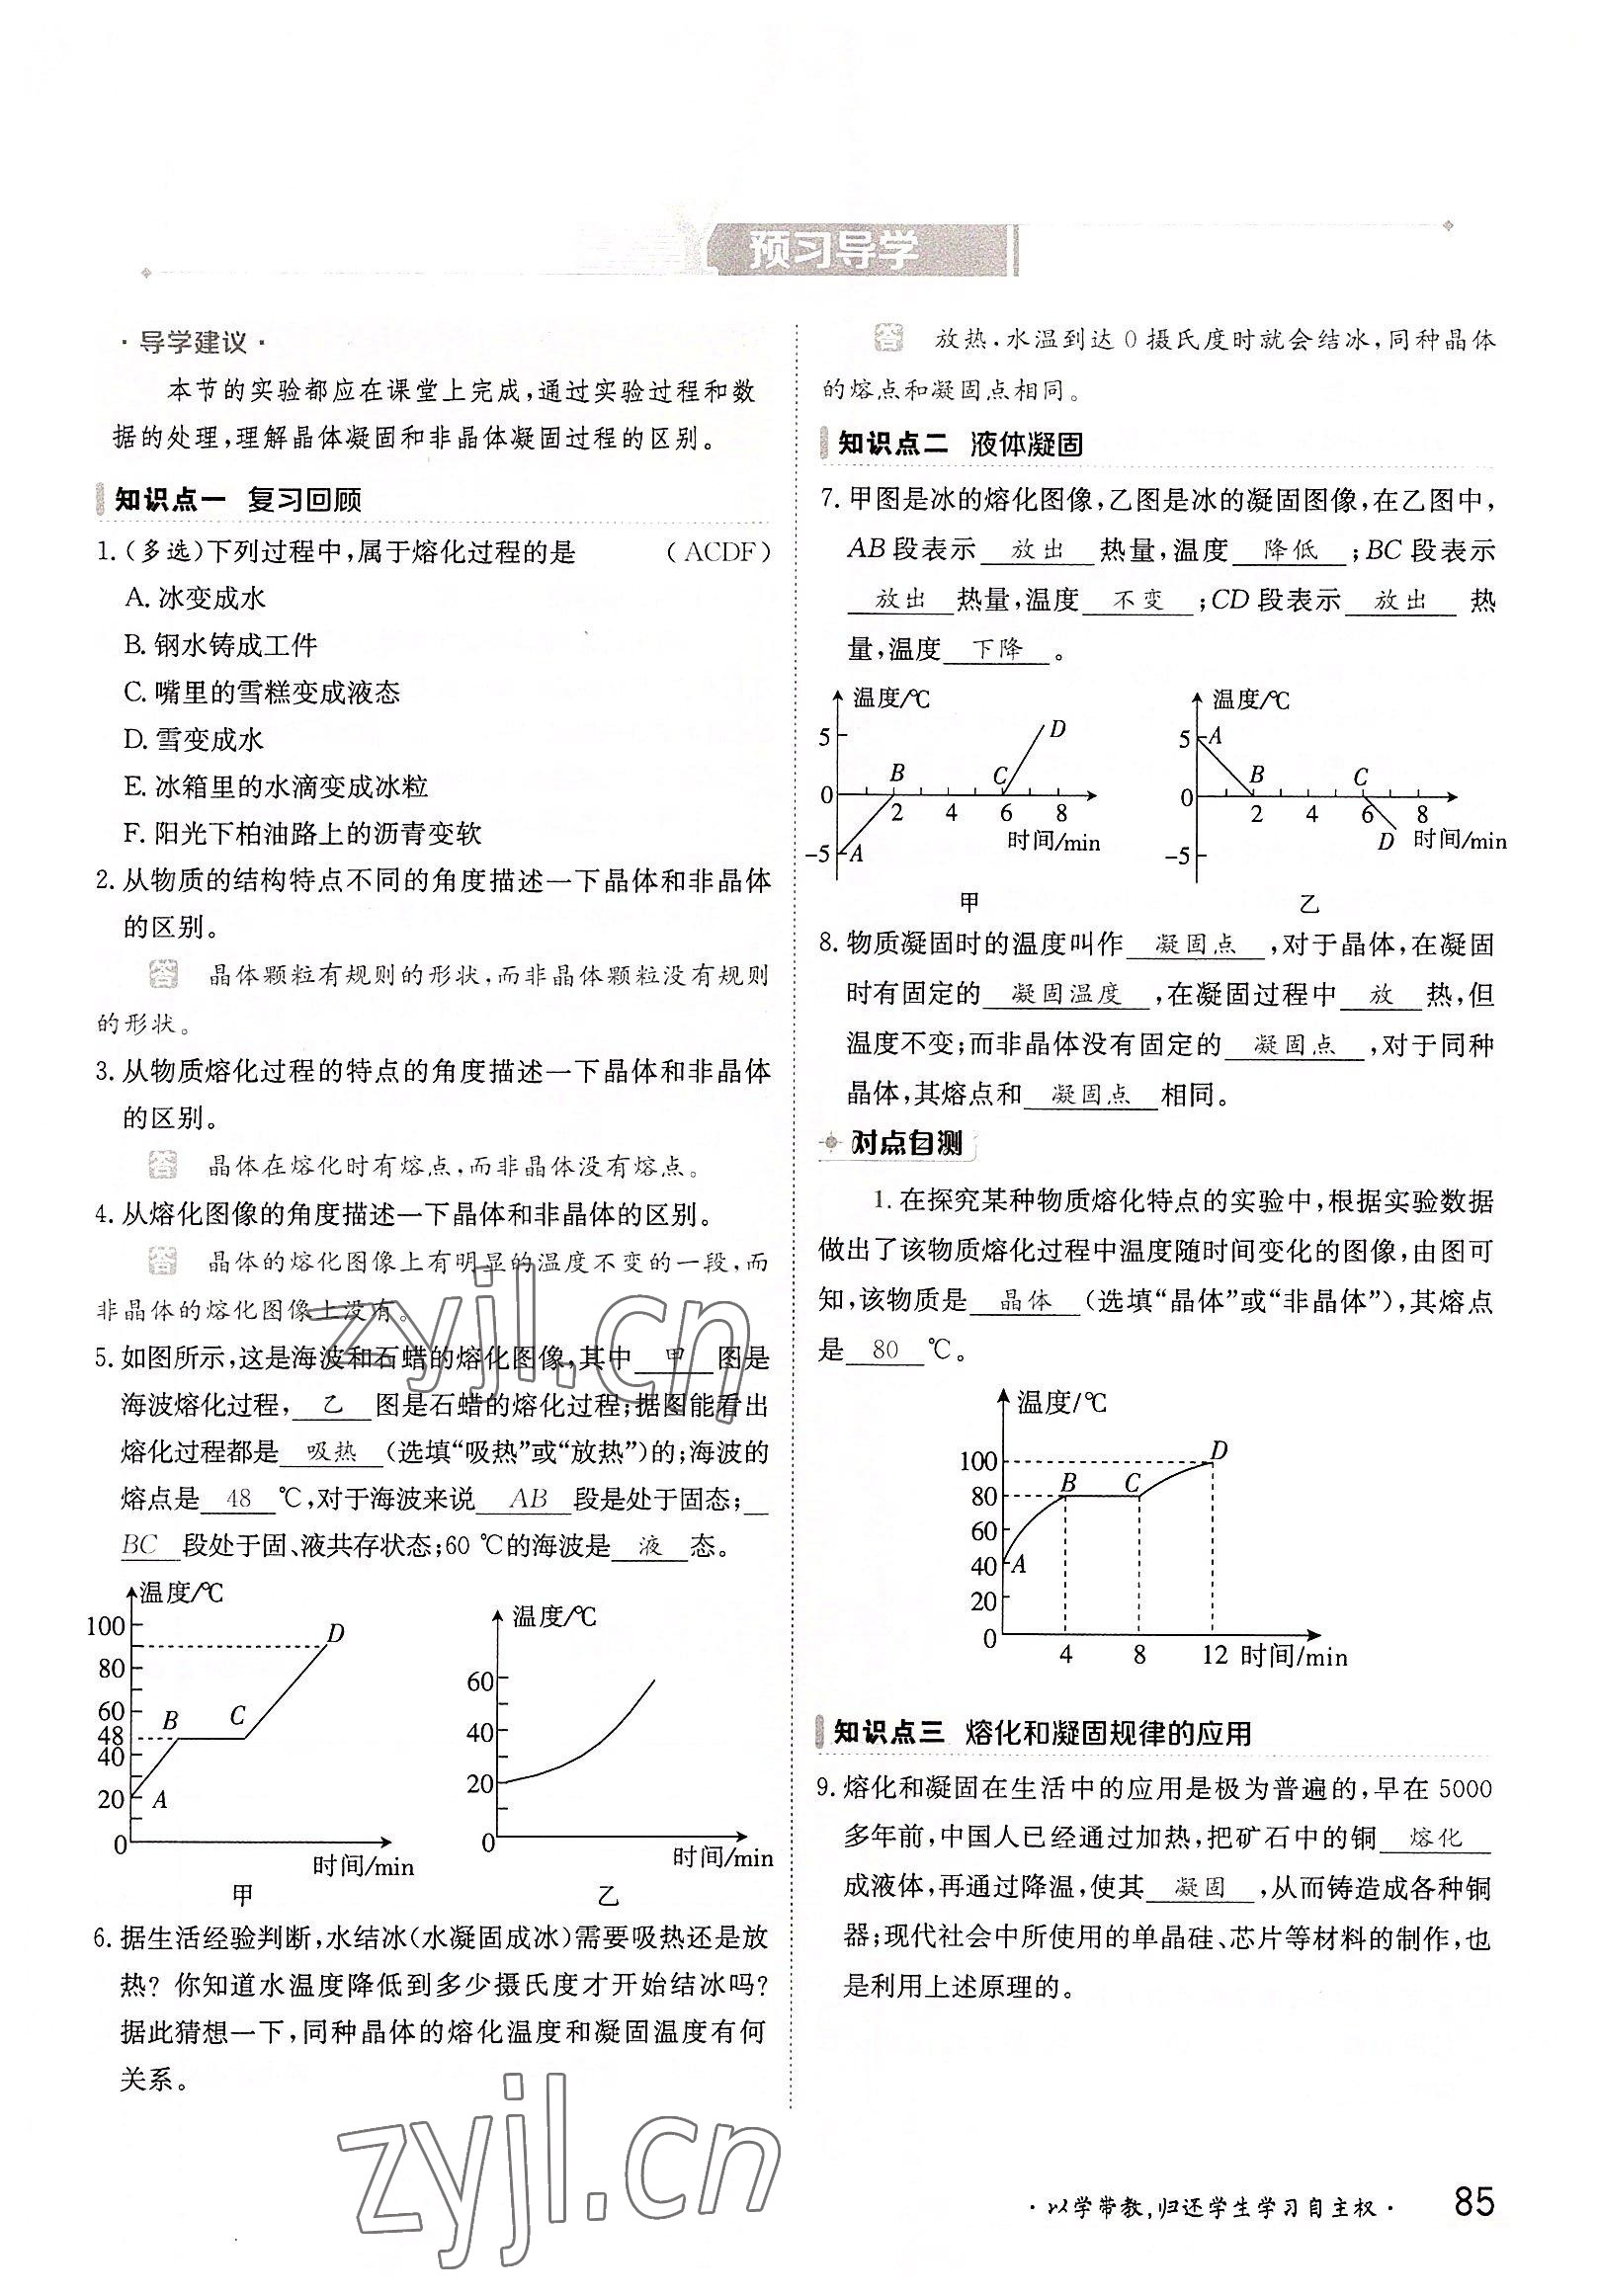 预习导学
·导学建议·
本节的实验都应在课堂上完成,通过实验过程和数
据的处理,理解晶体凝固和非晶体凝固过程的区别。
知识点一 复习回顾
1.(多选)下列过程中,属于熔化过程的是 (ACDF)
A. 冰变成水
B. 钢水铸成工件
C. 嘴里的雪糕变成液态
D. 雪变成水
E. 冰箱里的水滴变成冰粒
F. 阳光下柏油路上的沥青变软
2. 从物质的结构特点不同的角度描述一下晶体和非晶体
的区别。
答 晶体颗粒有规则的形状,而非晶体颗粒没有规则
的形状。
3. 从物质熔化过程的特点的角度描述一下晶体和非晶体
的区别。
答 晶体在熔化时有熔点,而非晶体没有熔点。
4. 从熔化图像的角度描述一下晶体和非晶体的区别。
答 晶体的熔化图像上有明显的温度不变的一段,而
非晶体的熔化图像上没有。
5. 如图所示,这是海波和石蜡的熔化图像,其中 甲 图是
海波熔化过程, 乙 图是石蜡的熔化过程;据图能看出
熔化过程都是 吸热 (选填“吸热”或“放热”)的;海波的
熔点是 48 ℃,对于海波来说 AB 段是处于固态;
BC 段处于固、液共存状态;60 ℃的海波是 液 态。
温度/℃
100
80
60
48
40
20
0
A
B
C
D
时间/min
甲
温度/℃
60
40
20
0
时间/min
乙
6. 据生活经验判断,水结冰(水凝固成冰)需要吸热还是放
热? 你知道水温度降低到多少摄氏度才开始结冰吗?
据此猜想一下,同种晶体的熔化温度和凝固温度有何
关系。
答 放热.水温到达0摄氏度时就会结冰,同种晶体
的熔点和凝固点相同。
知识点二 液体凝固
7. 甲图是冰的熔化图像,乙图是冰的凝固图像,在乙图中,
AB 段表示 放出 热量,温度 降低 ;BC 段表示
放出 热量,温度 不变 ;CD 段表示 放出 热
量,温度 下降 。
温度/℃
5
0
-5
A
B
C
D
2 4 6 8
时间/min
甲
温度/℃
5
0
-5
A
B
C
D
2 4 6 8
时间/min
乙
8. 物质凝固时的温度叫作 凝固点 ,对于晶体,在凝固
时有固定的 凝固温度 ,在凝固过程中 放 热,但
温度不变;而非晶体没有固定的 凝固点 ,对于同种
晶体,其熔点和 凝固点 相同。
对点自测
1. 在探究某种物质熔化特点的实验中,根据实验数据
做出了该物质熔化过程中温度随时间变化的图像,由图可
知,该物质是 晶体 (选填“晶体”或“非晶体”),其熔点
是 80 ℃。
温度/℃
100
80
60
40
20
0
A
B
C
D
4 8 12 时间/min
知识点三 熔化和凝固规律的应用
9. 熔化和凝固在生活中的应用是极为普遍的,早在 5000
多年前,中国人已经通过加热,把矿石中的铜 熔化
成液体,再通过降温,使其 凝固 ,从而铸造成各种铜
器;现代社会中所使用的单晶硅、芯片等材料的制作,也
是利用上述原理的。
zyjl.cn
zyjl.cn
·以学带教,归还学生学习自主权· 85